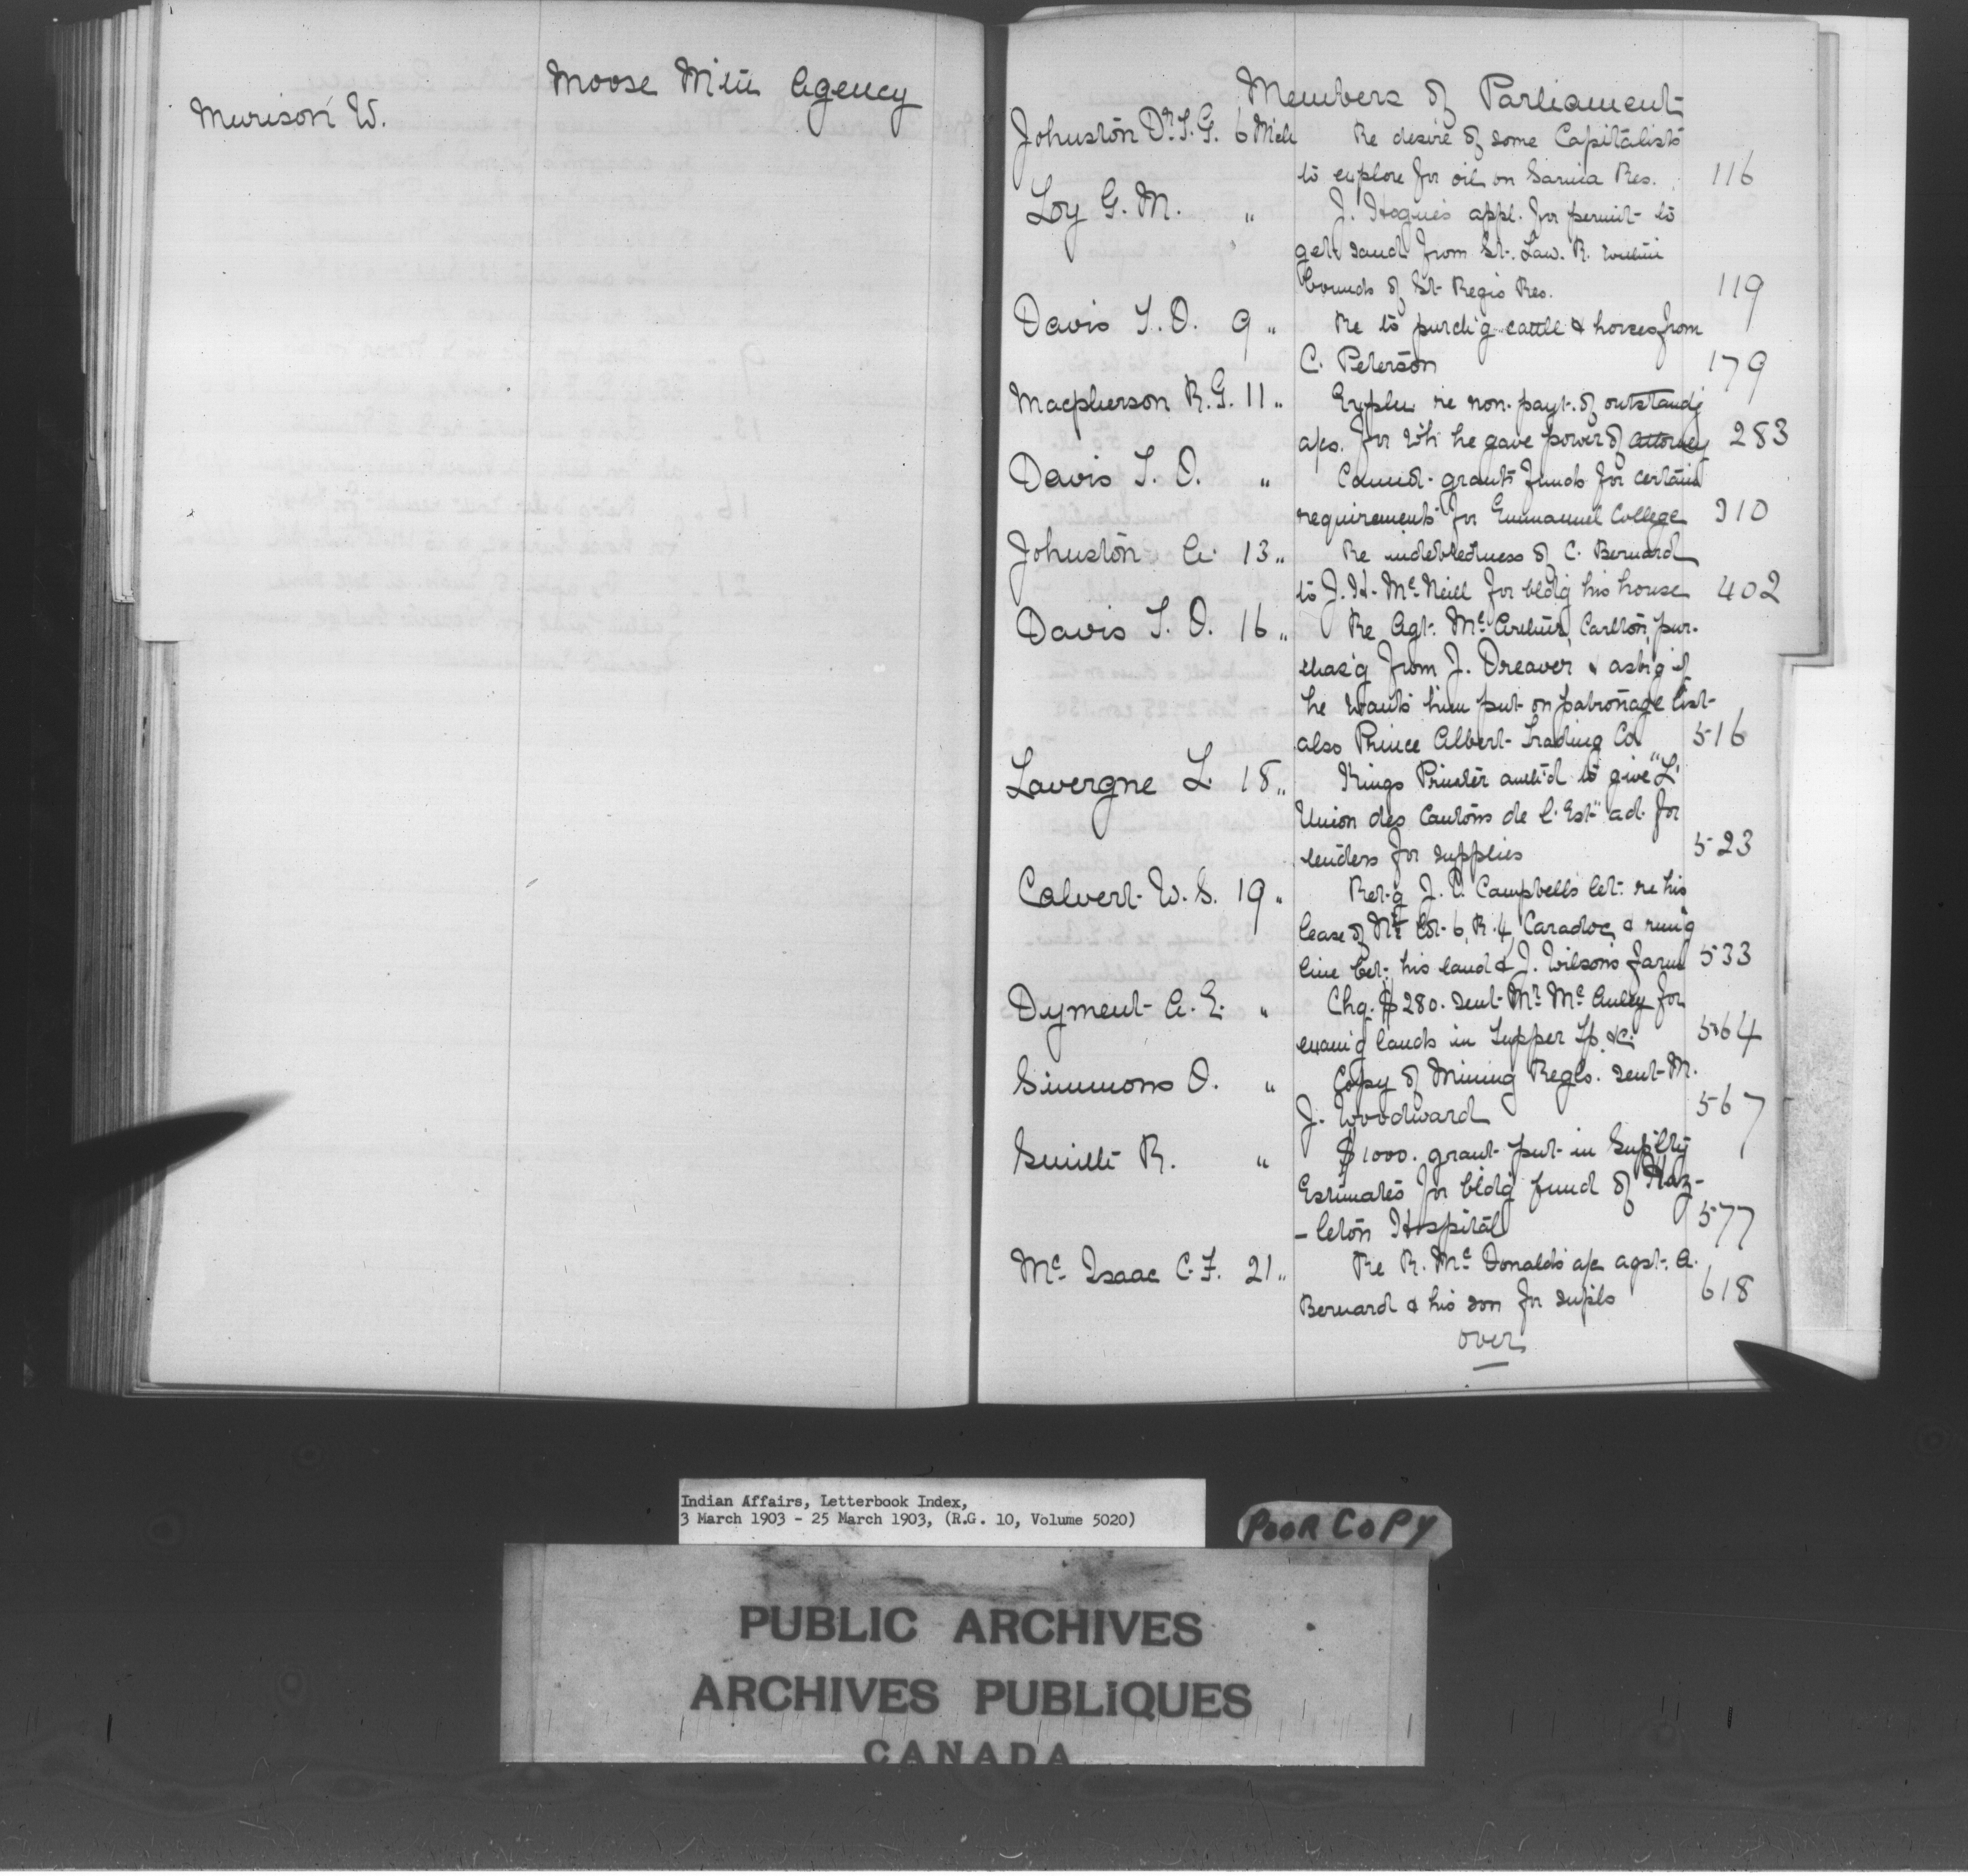 Moose Mtn Agency
Murison W.
Members of Parliament
Johnston Dr. T. G. 6 Mch Re desire of some Capitalists
to explore for oil on Sarnia Res. 116
Loy G. M. " J. Hogue's appl. for permit to
get sand from St. Law. R. within
bounds of St Regis Res. 119
Davis T. O. 9 " Re to purch'g cattle & horses from
C. Peterson 179
Macpherson R. G. 11 " Expln re non. payt. of outstandg
a/cs. for wh he gave power of attorney 283
Davis T. O. " grants funds for certain
requirements for Emmanuel College 310
Johnston A. 13 " Re indebtedness of C. Bernard
to J. H. McNeill for bldg his house 402
Davis T. O. 16 " Re Agt. McArthur, Carlton, pur-
chas'g from J. Dreaver & ask'g if
he wants him put on patronage list
also Prince Albert Trading Co 516
Lavergne L. 18 " Kings Printer auth'd to give "L'
Union des Cantons de l'Est" ad. for
tenders for supplies 523
Calvert W. S. 19 " Ret'g J. C. Campbell's let. re his
lease of N½ Lot 6, R. 4, Caradoc & run'g
line bet. his land & J. Wilson's farm 533
Dyment A. E. " Chq. $280. sent Mr McAuley for
exam'g lands in Tupper Tp. &c. 564
Simmons O. " Copy of Mining Regls. sent M.
J. Woodward 567
Smith R. " $1000. grant put in Suplty
Estimates for bldg fund of Haz-
-leton Hospital 577
McIsaac C. F. 21 " Re R. McDonald's a/c agst. A.
Bernard & his son for supls 618
over
Indian Affairs, Letterbook Index,
3 March 1903 - 25 March 1903, (R.G. 10, Volume 5020)
POOR COPY
PUBLIC ARCHIVES
ARCHIVES PUBLIQUES
CANADA